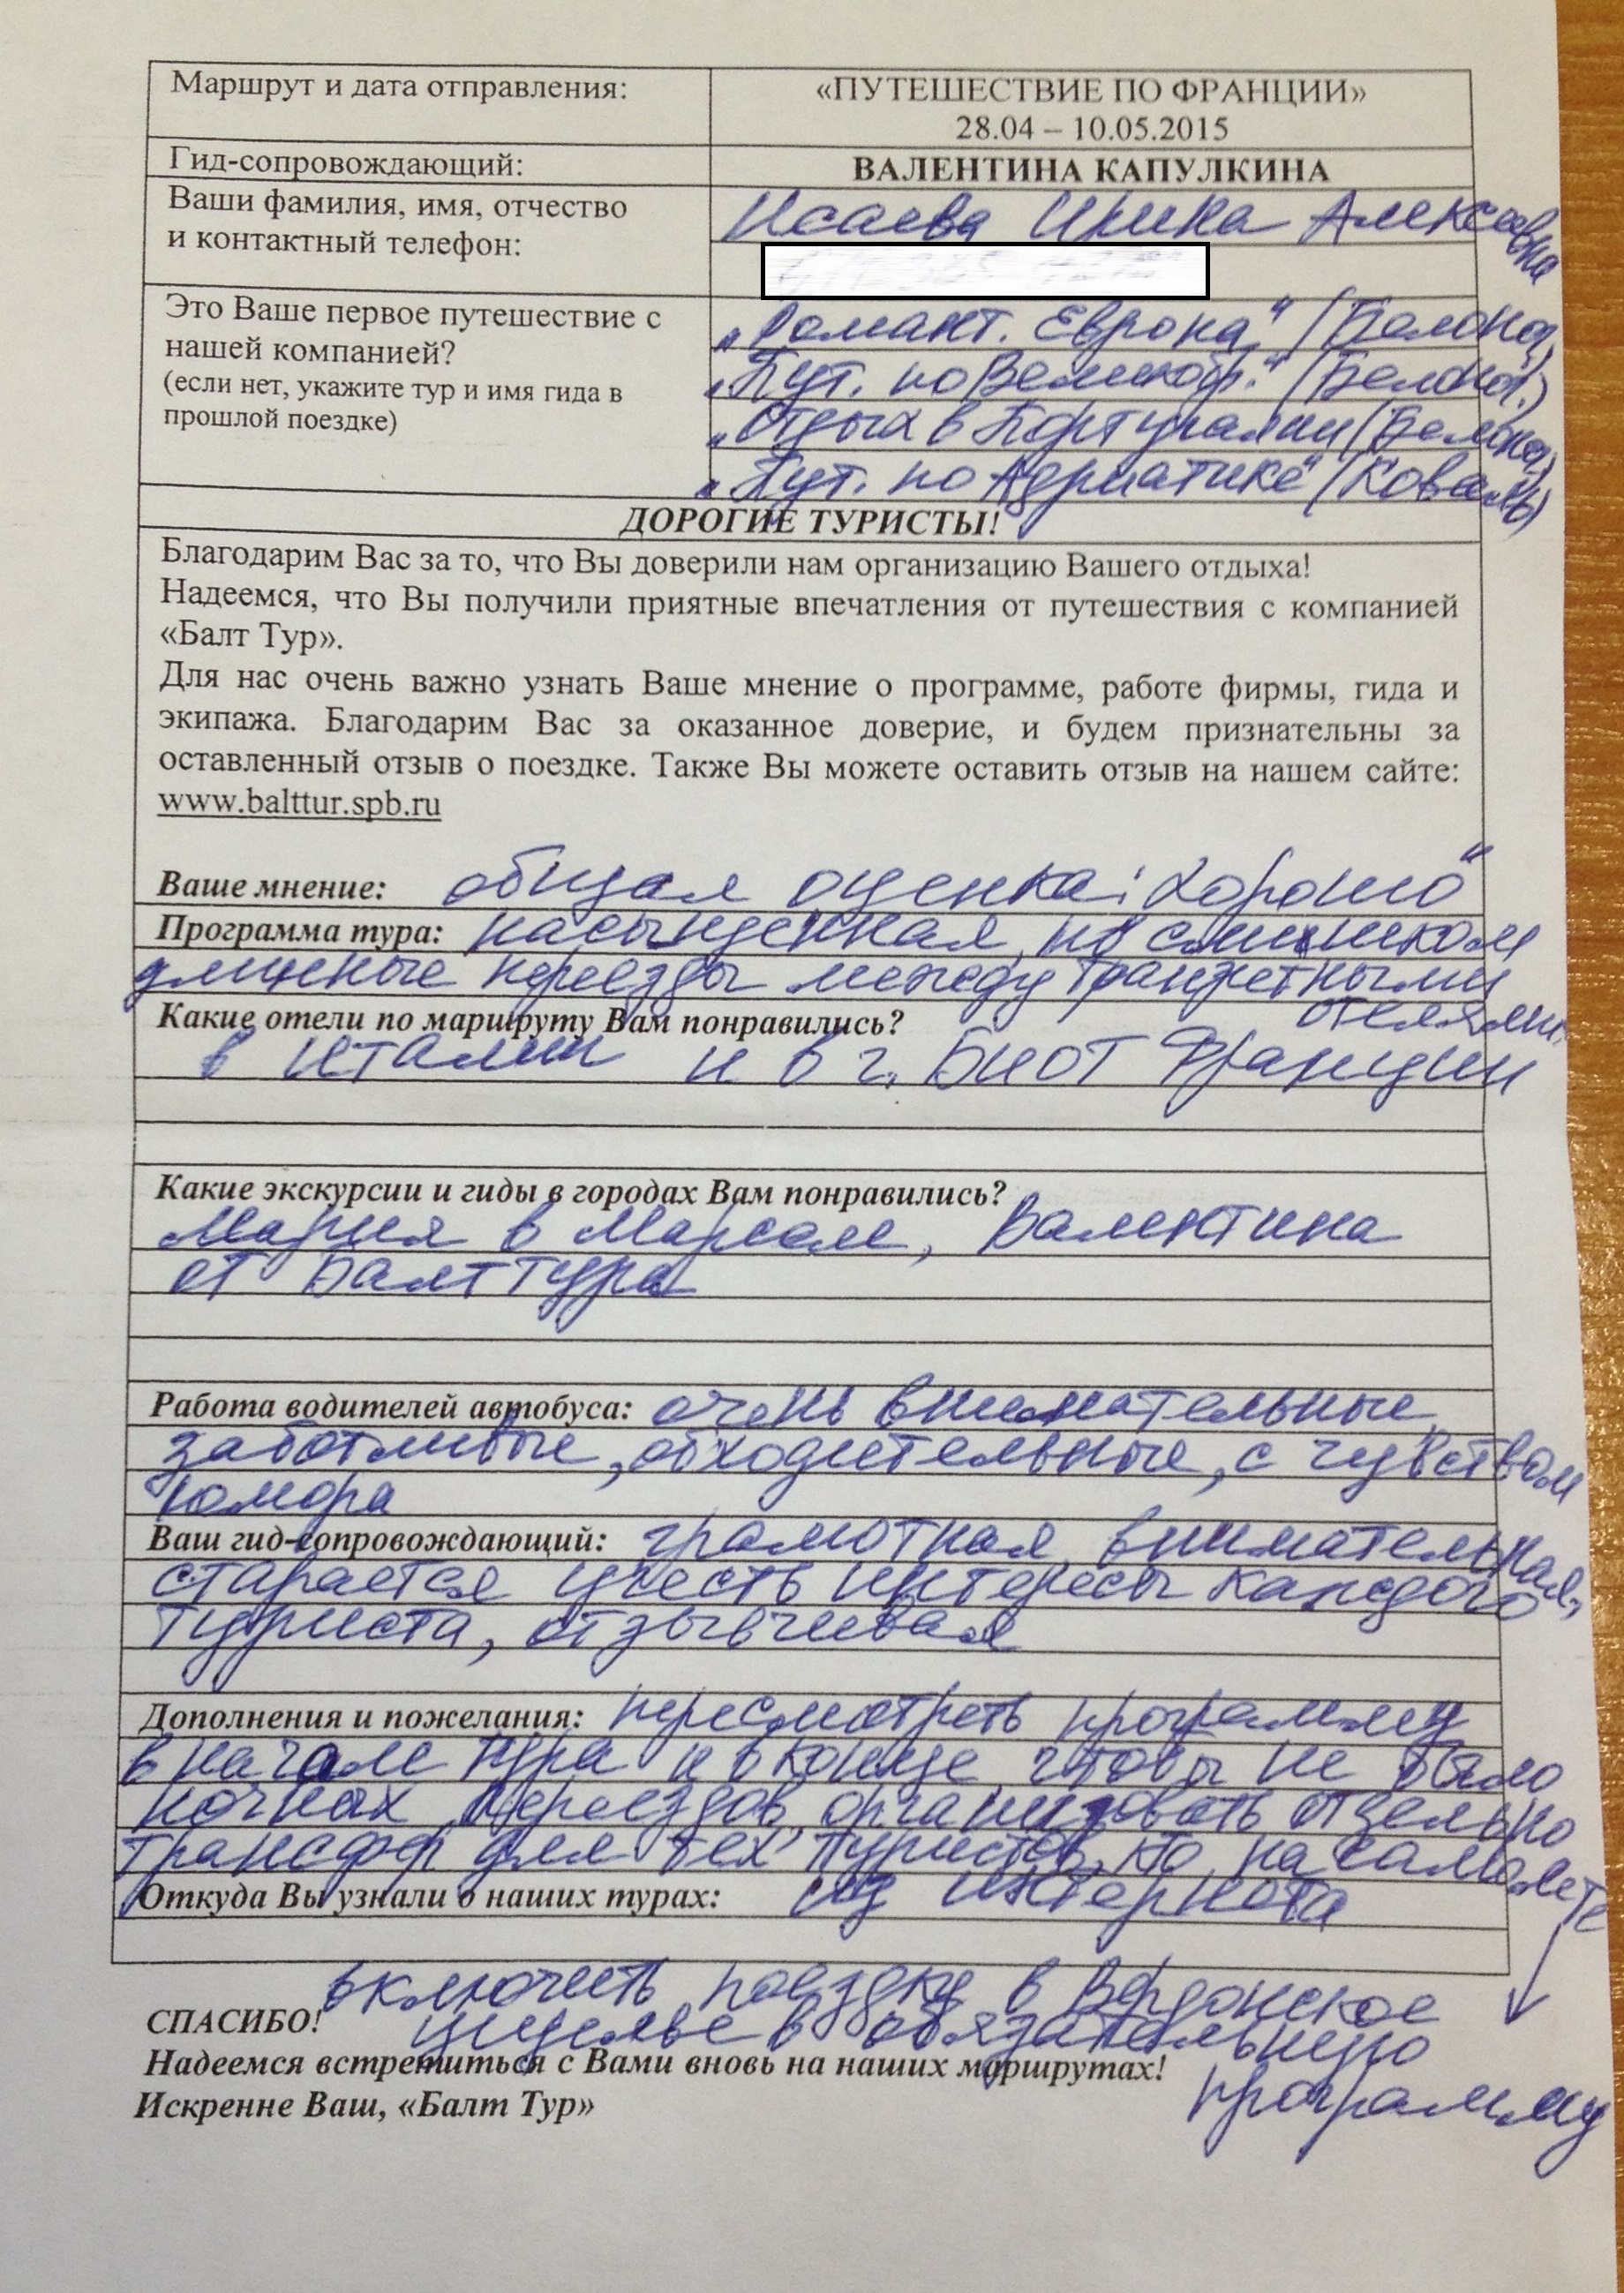 Маршрут и дата отправления:
«ПУТЕШЕСТВИЕ ПО ФРАНЦИИ»
28.04 – 10.05.2015
Гид-сопровождающий:
ВАЛЕНТИНА КАПУЛКИНА
Ваши фамилия, имя, отчество
и контактный телефон:
Исаева Ирина Алексеевна
Это Ваше первое путешествие с
нашей компанией?
(если нет, укажите тур и имя гида в
прошлой поездке)
„Романт. Европа" (
„Пут. по Великобр." (
„Отдых в Португалии (
„Пут. по Адриатике" (Коваль)
ДОРОГИЕ ТУРИСТЫ!
Благодарим Вас за то, что Вы доверили нам организацию Вашего отдыха!
Надеемся, что Вы получили приятные впечатления от путешествия с компанией
«Балт Тур».
Для нас очень важно узнать Ваше мнение о программе, работе фирмы, гида и
экипажа. Благодарим Вас за оказанное доверие, и будем признательны за
оставленный отзыв о поездке. Также Вы можете оставить отзыв на нашем сайте:
www.balttur.spb.ru
Ваше мнение: общая оценка: хорошо"
Программа тура: насыщенная, но слишком
длинные переезды между транзитными
отелями.
Какие отели по маршруту Вам понравились?
в Италии и в г. Биот Франции
Какие экскурсии и гиды в городах Вам понравились?
Мария в Марселе, Валентина
от Балттура
Работа водителей автобуса: очень внимательные,
заботливые, обходительные, с чувством
юмора
Ваш гид-сопровождающий: грамотная, внимательная,
старается учесть интересы каждого
туриста, отзывчивая
Дополнения и пожелания: пересмотреть программу
в начале тура и в конце, чтобы не было
ночных переездов, организовать отдельно
трансфер для тех туристов, кто на самолете
Откуда Вы узнали о наших турах: из интернета
включить поездку в Вердонское
СПАСИБО! ущелье в обязательную
Надеемся встретиться с Вами вновь на наших маршрутах!
программу
Искренне Ваш, «Балт Тур»